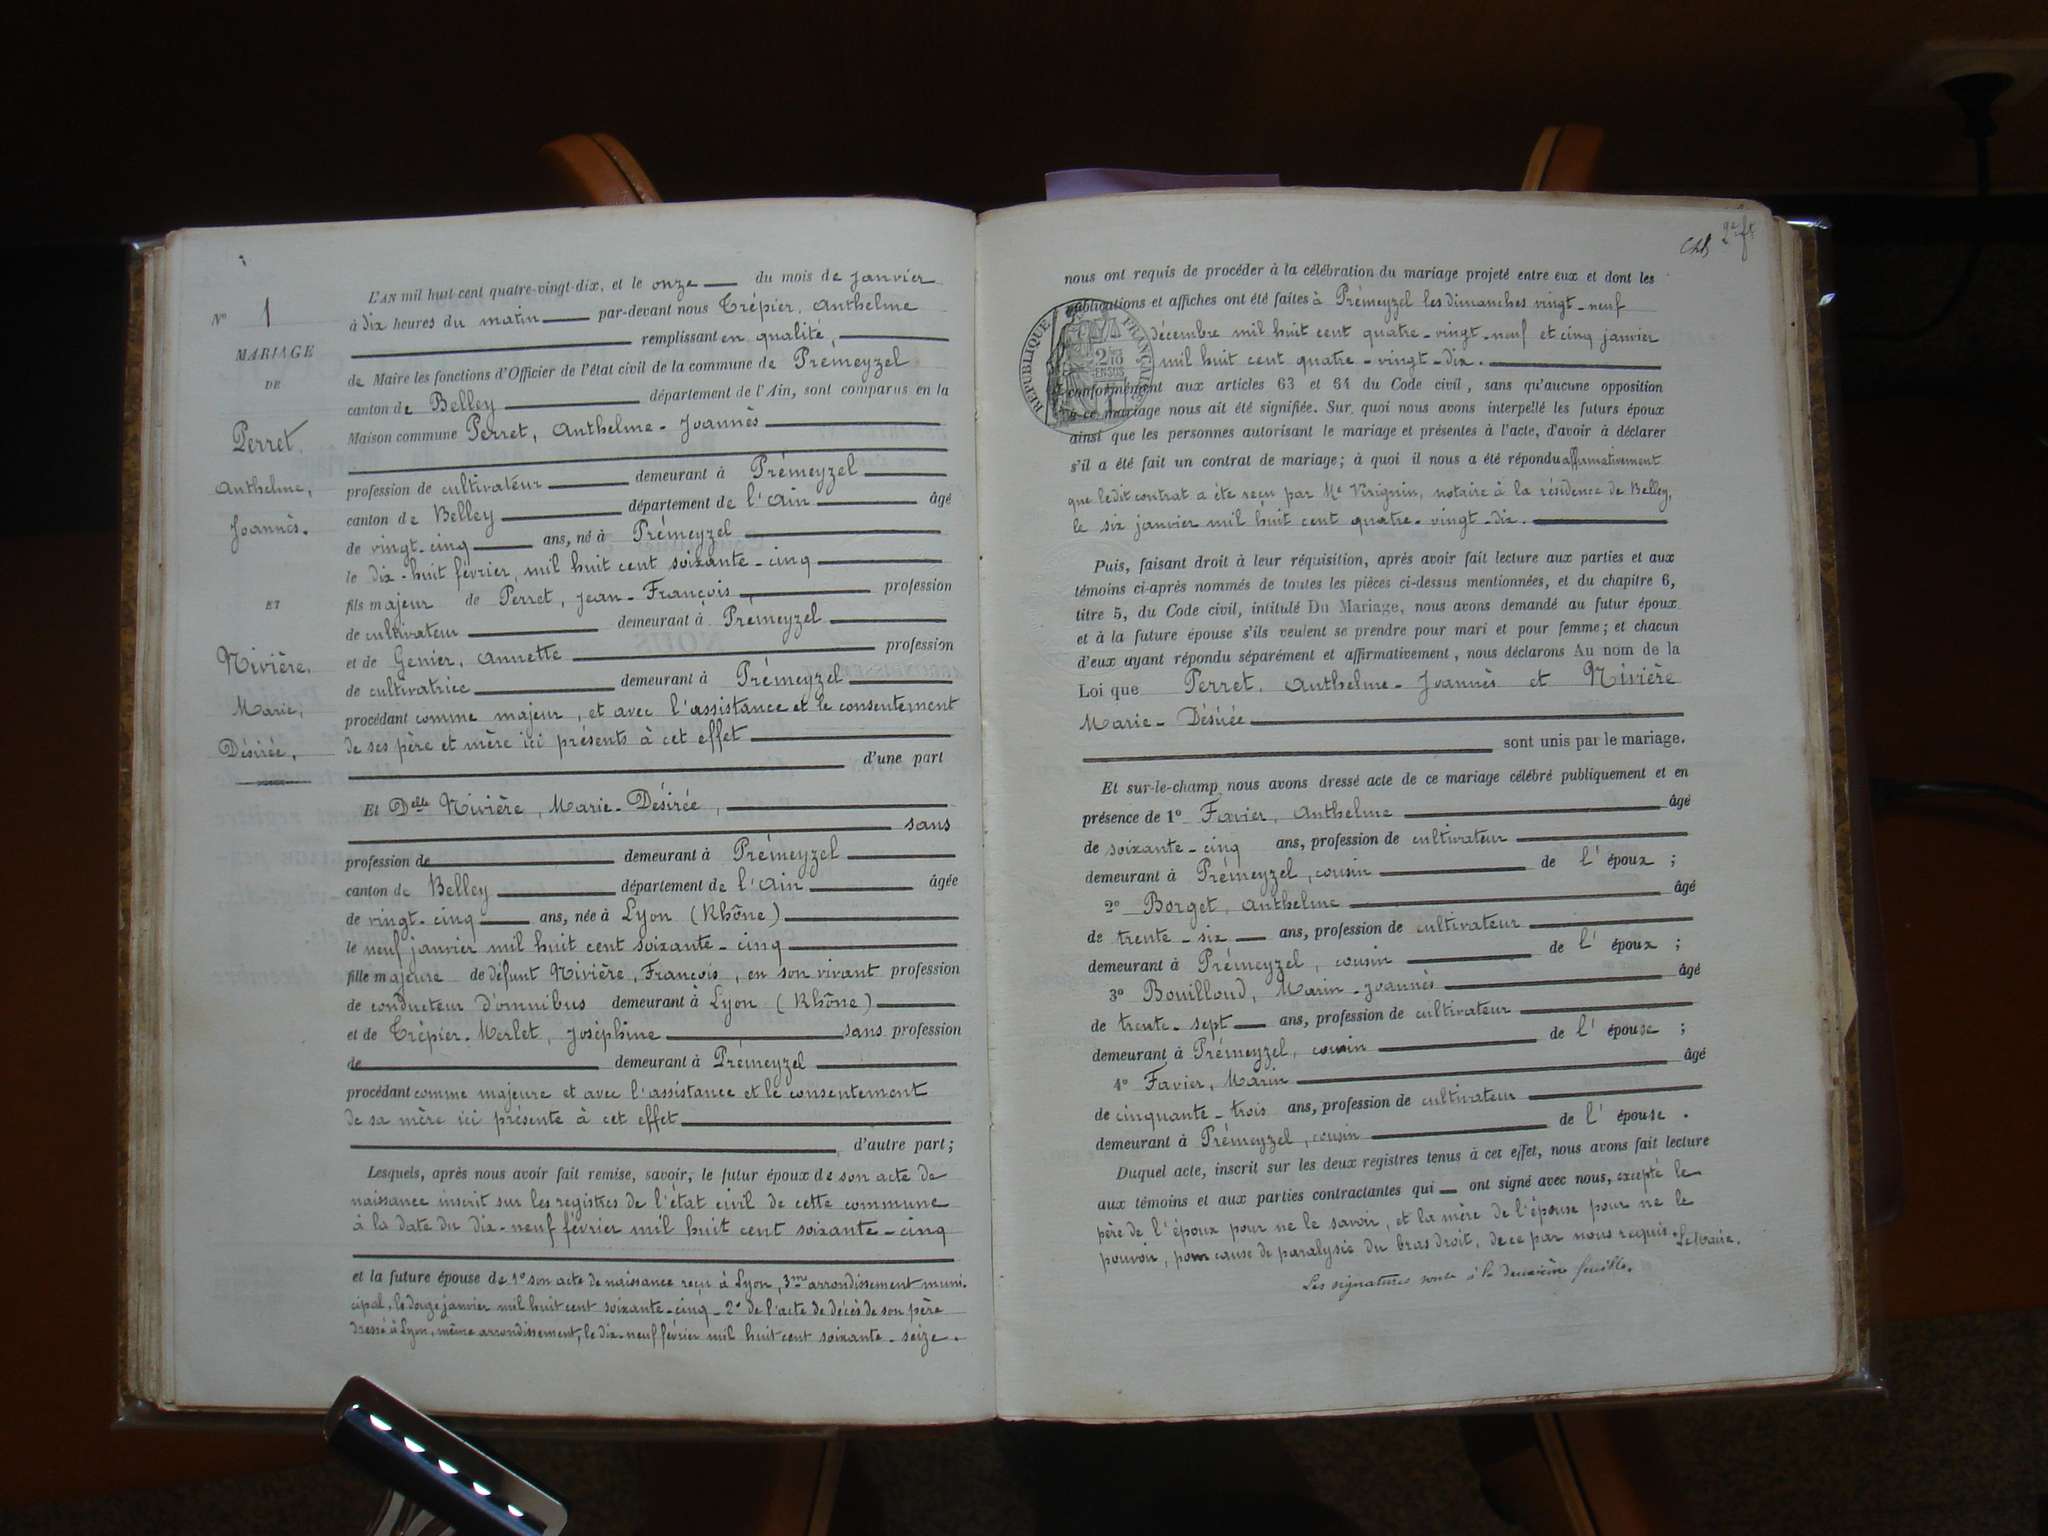 N° 1
MARIAGE
DE
Perret.
Anthelme,
Joannès.
ET
Nivière.
Marie,
Désirée,
L'AN mil huit cent quatre-vingt-dix, et le onze du mois de Janvier
à dix heures du matin par-devant nous Trépier, Anthelme
remplissant en qualité,
de Maire les fonctions d'Officier de l'état civil de la commune de Prémeyzel
canton de Belley département de l'Ain, sont comparus en la
Maison commune Perret, Anthelme-Joannès
profession de cultivateur demeurant à Prémeyzel
canton de Belley département de l'Ain âgé
de vingt-cinq ans, né à Prémeyzel
le dix-huit février, mil huit cent soixante-cinq
fils majeur de Perret, Jean-François profession
de cultivateur demeurant à Prémeyzel
et de Genier, Annette profession
de cultivatrice demeurant à Prémeyzel
procédant comme majeur, et avec l'assistance et le consentement
de ses père et mère ici présents à cet effet
d'une part
Et Delle Nivière, Marie-Désirée,
sans
profession de demeurant à Prémeyzel
canton de Belley département de l'Ain âgée
de vingt-cinq ans, née à Lyon (Rhône)
le neuf janvier mil huit cent soixante-cinq
fille majeure de défunt Nivière, François, en son vivant profession
de conducteur d'omnibus demeurant à Lyon (Rhône)
et de Trépier-Merlet, Joséphine sans profession
de demeurant à Prémeyzel
procédant comme majeure et avec l'assistance et le consentement
de sa mère ici présente à cet effet
d'autre part;
Lesquels, après nous avoir fait remise, savoir, le futur époux de son acte de
naissance inscrit sur les registres de l'état civil de cette commune
à la date du dix-neuf février mil huit cent soixante-cinq
et la future épouse de 1° son acte de naissance reçu à Lyon, 3me arrondissement muni-
cipal, le douze janvier mil huit cent soixante-cinq - 2° de l'acte de décès de son père
dressé à Lyon, même arrondissement, le dix-neuf février mil huit cent soixante-seize.
2e ft
nous ont requis de procéder à la célébration du mariage projeté entre eux et dont les
publications et affiches ont été faites à Prémeyzel les dimanches vingt-neuf
décembre mil huit cent quatre-vingt-neuf et cinq janvier
mil huit cent quatre-vingt-dix.
conformément aux articles 63 et 64 du Code civil, sans qu'aucune opposition
à ce mariage nous ait été signifiée. Sur quoi nous avons interpellé les futurs époux
ainsi que les personnes autorisant le mariage et présentes à l'acte, d'avoir à déclarer
s'il a été fait un contrat de mariage; à quoi il nous a été répondu affirmativement
que ledit contrat a été reçu par Me Virignin, notaire à la résidence de Belley,
le six janvier mil huit cent quatre-vingt-dix.
RÉPUBLIQUE FRANÇAISE
2/10
EN SUS
Puis, faisant droit à leur réquisition, après avoir fait lecture aux parties et aux
témoins ci-après nommés de toutes les pièces ci-dessus mentionnées, et du chapitre 6,
titre 5, du Code civil, intitulé Du Mariage, nous avons demandé au futur époux
et à la future épouse s'ils veulent se prendre pour mari et pour femme; et chacun
d'eux ayant répondu séparément et affirmativement, nous déclarons Au nom de la
Loi que Perret, Anthelme-Joannès et Nivière
Marie-Désirée
sont unis par le mariage.
Et sur-le-champ nous avons dressé acte de ce mariage célébré publiquement et en
présence de 1° Favier, Anthelme âgé
de soixante-cinq ans, profession de cultivateur
demeurant à Prémeyzel, cousin de l'époux;
2° Borget, Anthelme âgé
de trente-six ans, profession de cultivateur
demeurant à Prémeyzel, cousin de l'époux;
3° Bouilloud, Marin-Joannès âgé
de trente-sept ans, profession de cultivateur
demeurant à Prémeyzel, cousin de l'épouse;
4° Favier, Marin âgé
de cinquante-trois ans, profession de cultivateur
demeurant à Prémeyzel, cousin de l'épouse.
Duquel acte, inscrit sur les deux registres tenus à cet effet, nous avons fait lecture
aux témoins et aux parties contractantes qui ont signé avec nous, excepté le
père de l'époux pour ne le savoir, et la mère de l'épouse pour ne le
pouvoir, pour cause de paralysie du bras droit, de ce par nous requis. Le Maire.
Les signatures sont à la deuxième feuille.